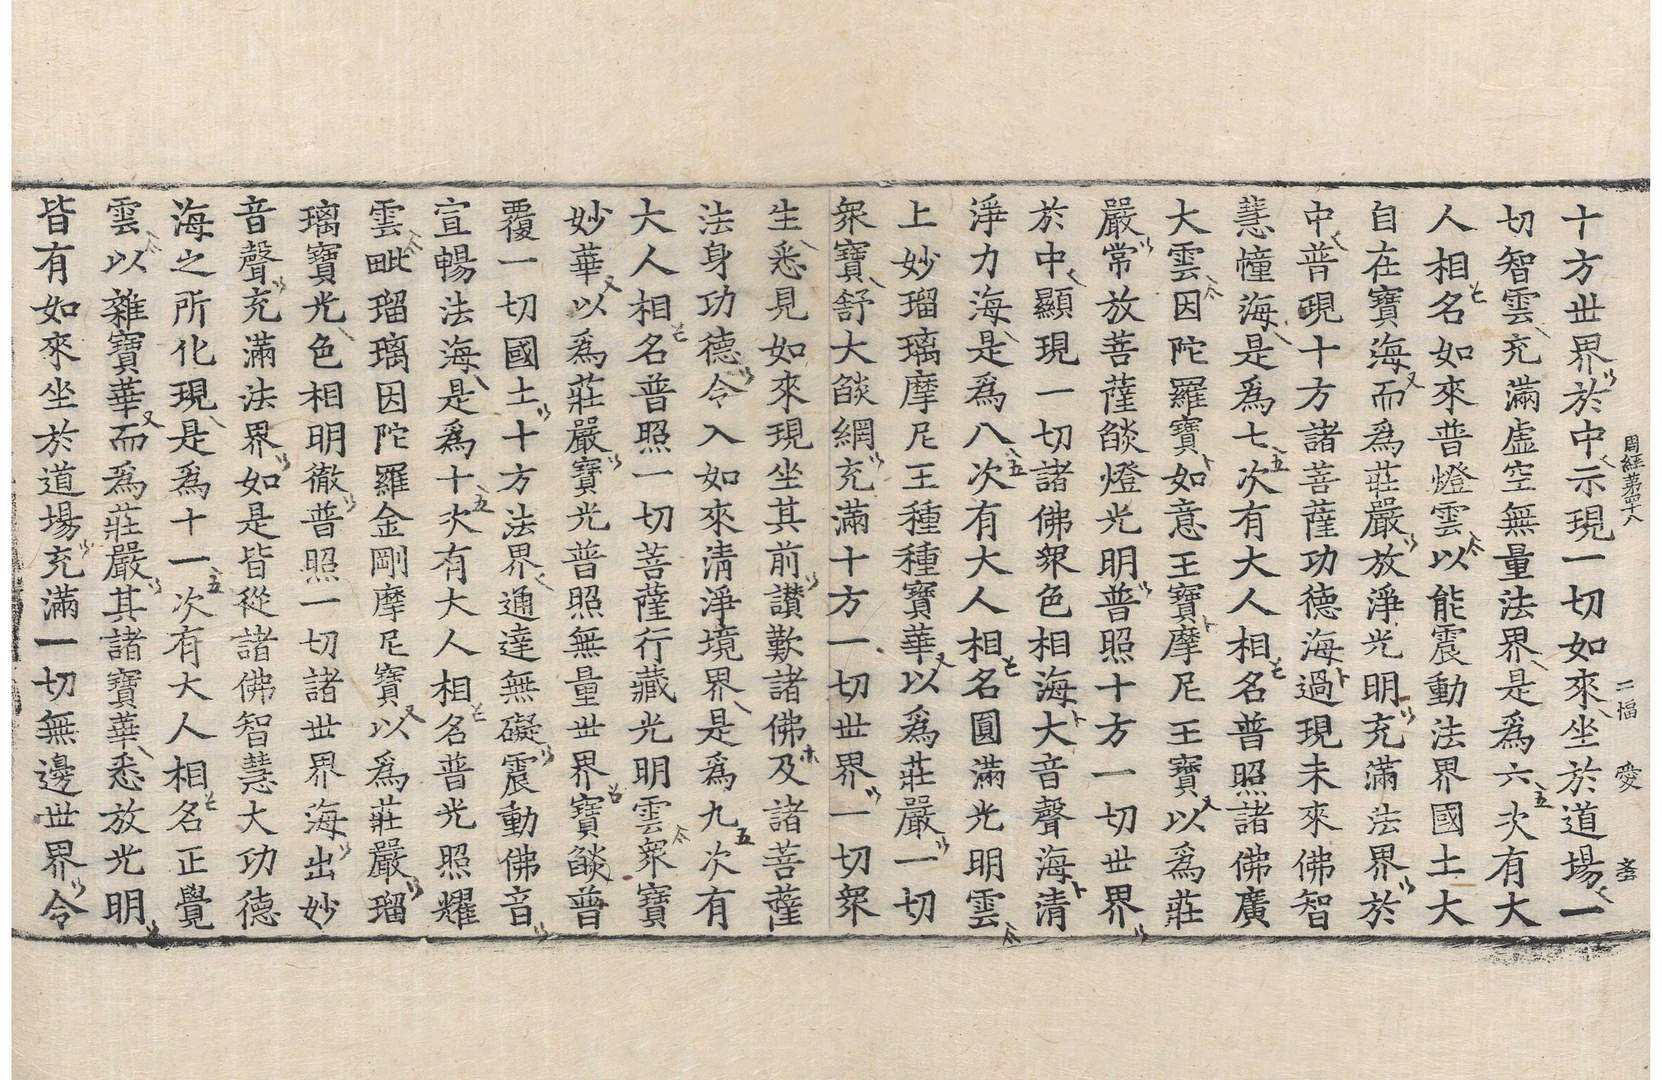 周經第四十八　二幅　愛
十方世界於中示現一切如來坐於道場一
切智雲充滿虛空無量法界是爲六次有大
人相名如來普燈雲以能震動法界國土大
自在寶海而爲莊嚴放淨光明充滿法界於
中普現十方諸菩薩功德海過現未來佛智
慧幢海是爲七次有大人相名普照諸佛廣
大雲因陀羅寶如意王寶摩尼王寶以爲莊
嚴常放菩薩燄燈光明普照十方一切世界
於中顯現一切諸佛衆色相海大音聲海清
淨力海是爲八次有大人相名圓滿光明雲
上妙瑠璃摩尼王種種寶華以爲莊嚴一切
衆寶舒大燄網充滿十方一切世界一切衆
生悉見如來現坐其前讚歎諸佛及諸菩薩
法身功德令入如來清淨境界是爲九次有
大人相名普照一切菩薩行藏光明雲衆寶
妙華以爲莊嚴寶光普照無量世界寶燄普
覆一切國土十方法界通達無礙震動佛音
宣暢法海是爲十次有大人相名普光照耀
雲毗瑠璃因陀羅金剛摩尼寶以爲莊嚴瑠
璃寶光色相明徹普照一切諸世界海出妙
音聲充滿法界如是皆從諸佛智慧大功德
海之所化現是爲十一次有大人相名正覺
雲以雜寶華而爲莊嚴其諸寶華悉放光明
皆有如來坐於道場充滿一切無邊世界令